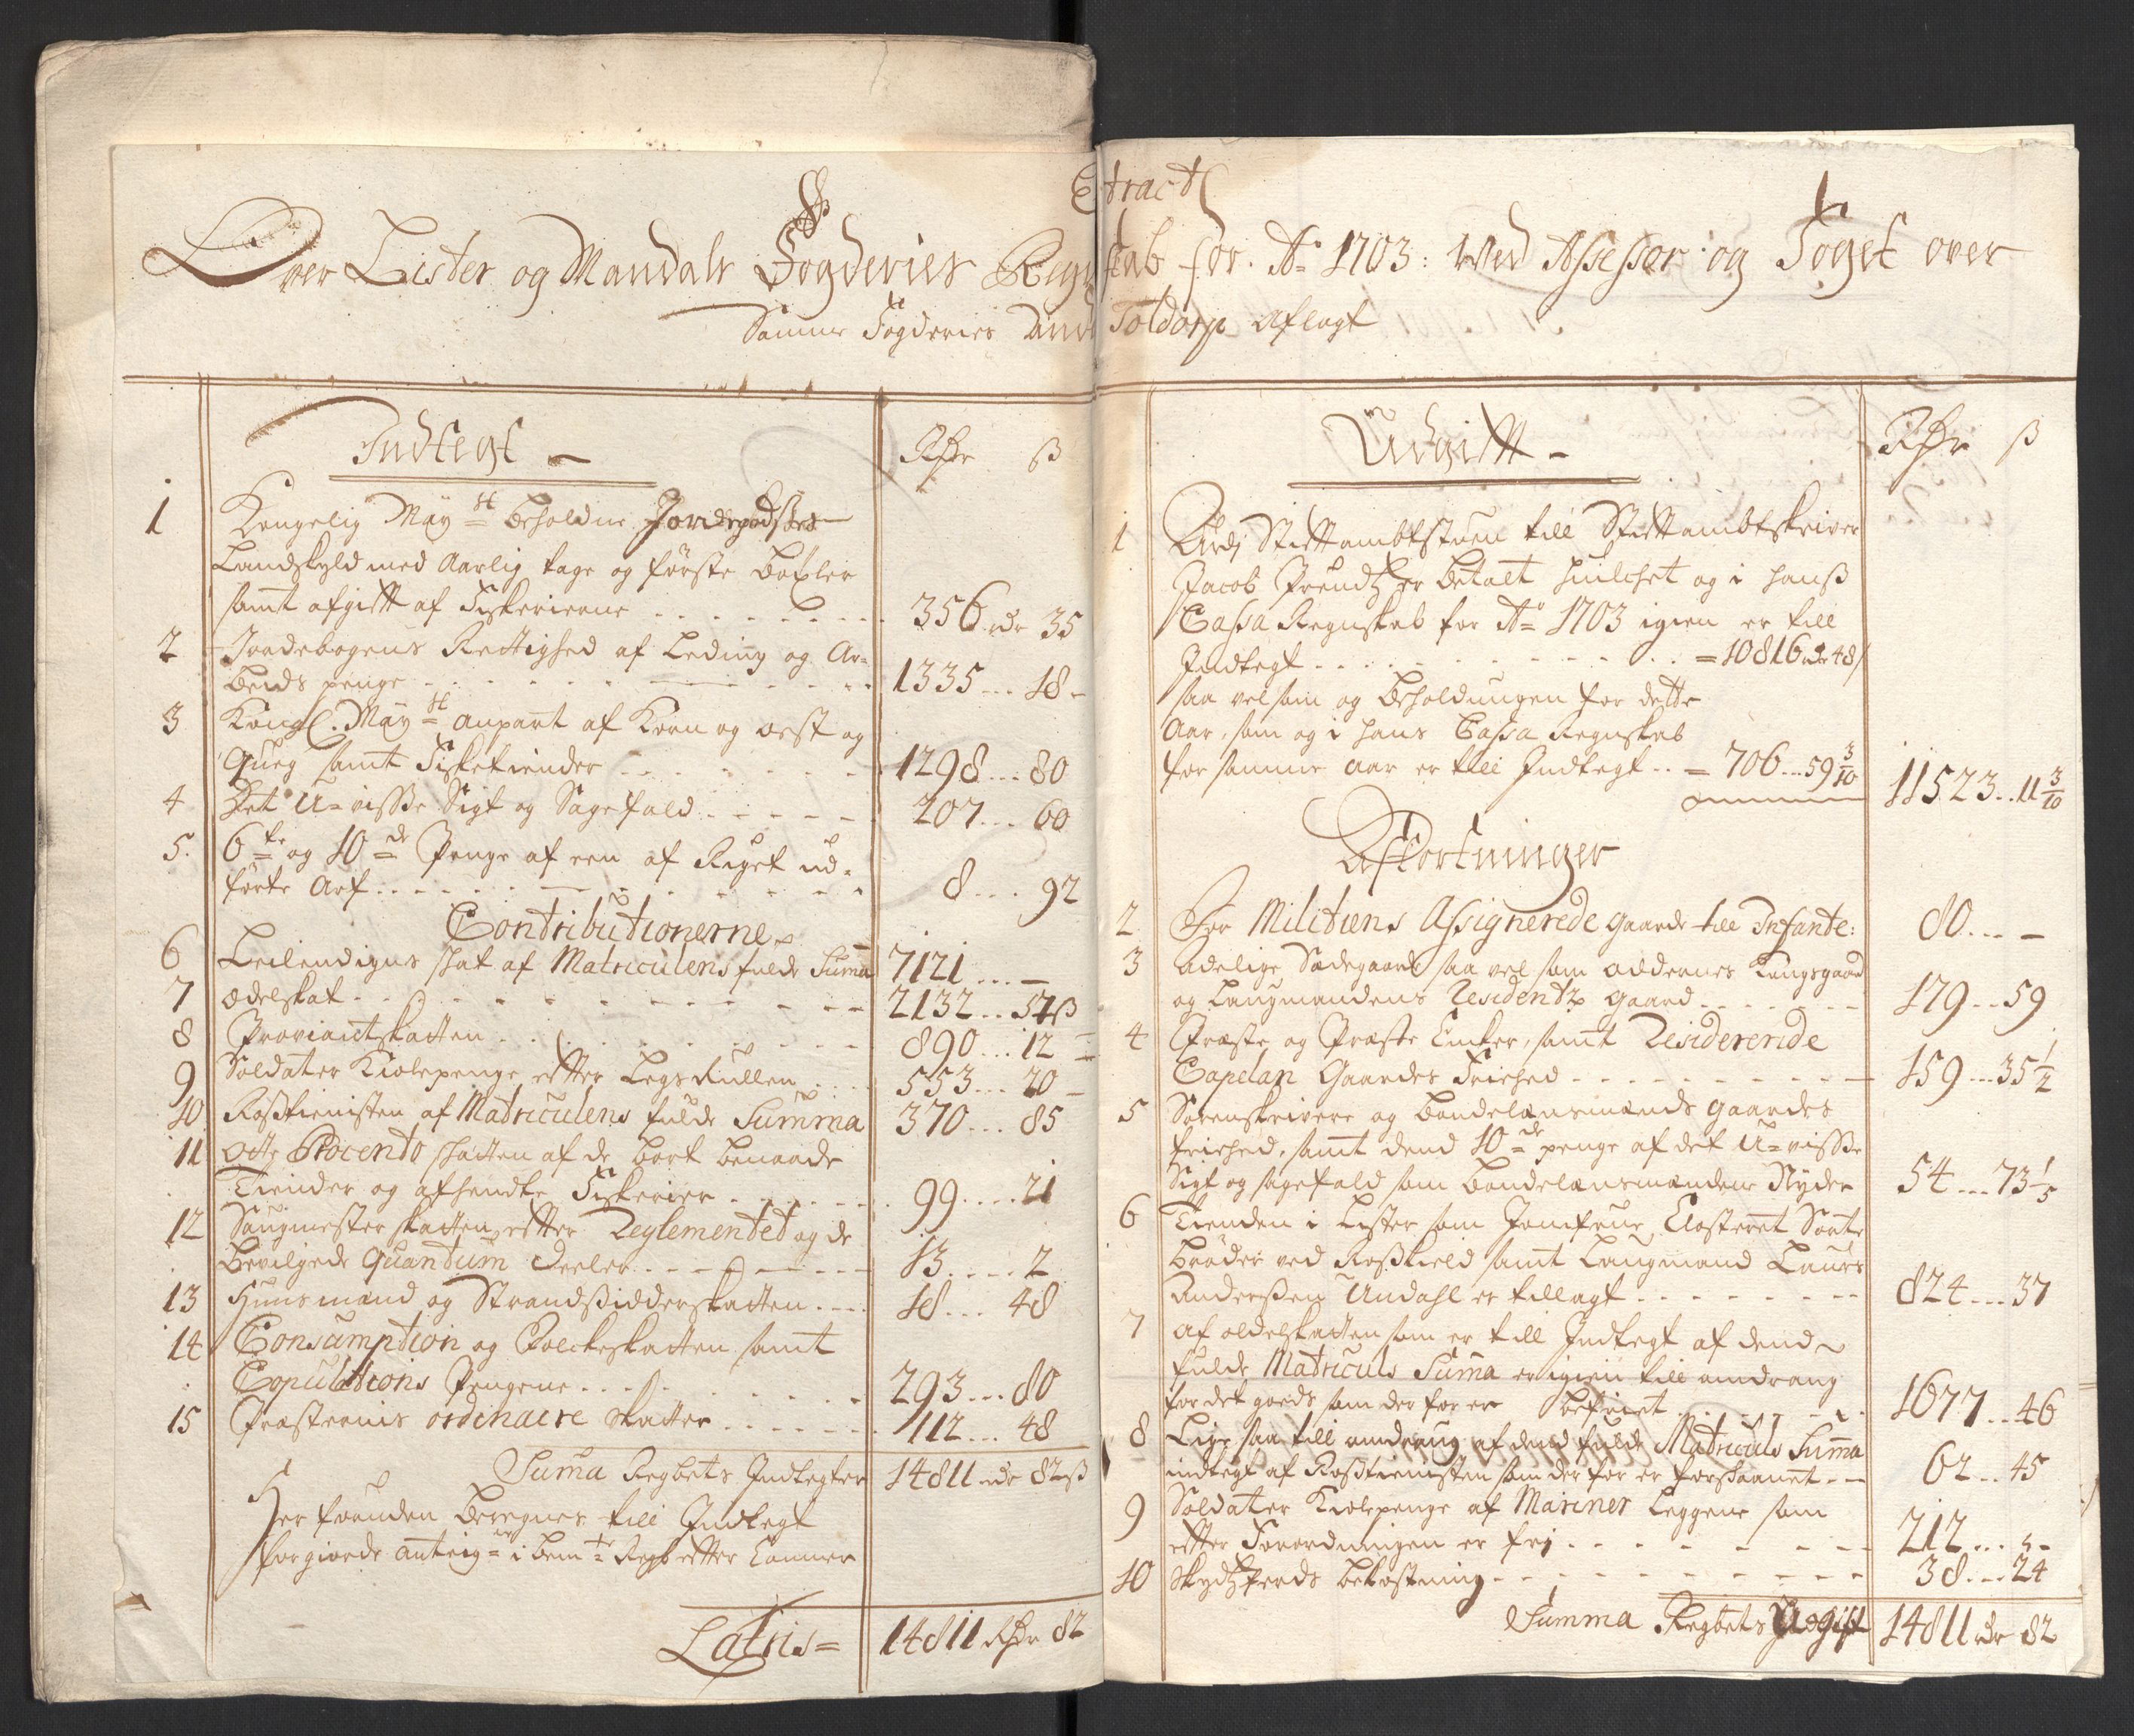 Extract
Over Lister og Mandals Fogderies Regnskab for Ao 1703: Ved Assessor og Foget over
Samme Fogderies Toldorp aflagt
Indtegt
Rdr ß
1 Kongelig Mayst beholdne Jordegodses
Landskyld med Aarlig tage og förste böxler
samt afgift af Fiskerierne 356 rdr 35
2 Jordebogens Rettighed af Leding og Ar=
beids penge 1335 18
3 Kongl. Mayst anpart af Korn og ost og
queg samt Fisketiender 1298 80
4 Det U=visse Sigt og Sagefald 207 60
5. 6te og 10de Penge af een af Riget ud=
förte Arf 8 92
Contributionerne
6 Leilendigns skat af Matriculens fulde Suma 7121
7 Odelskat 2132 57ß
8 Proviantskatten 890 12
9 Soldater Kiolepenge efter Legs Rullen 553 20
10 Rosstienisten af Matriculens fulde Summa 370 85
11 Otte Procento skatten af de bort benaade
Tiender og afhendte Fiskerier 99 21
12 Saugmester skatten efter Reglementet og de
bevilgede Quantum deeler 13 2
13 Huusmænd og Strandsidderskatten 18 48
14 Consumption og Folckeskatten samt
Copulations Pengene 293 80
15 Præsternis ordinaire skatter 112 48
Suma Regbets Indtegter 14811 rdr 82ß
Her foruden beregnes till Indtegt
forgiorde anteign i bemte Regb efter Cammer
Latris = 14811 Rdr 82
Udgift
Rdr ß
1 Udj Stiftambtstuen till Stiftambtskriver
Jacob Prendtz er betalt huilchet og i hans
Cassa Regnskab for Ao 1703 igien er till
Indtegt = 10816 rdr 48
saa vel som og beholdningen for dette
Aar, som og i hans Cassa Regnskab
for samme aar er till Indtegt = 706 59 3/10
11523 11 3/10
Afkortninger
2 For Militiens Assignerede gaarde till Infante: 80
3 Adelige Sædegaarde saa vel som oddernes Kongsgaard
og Laugmandens Residentz gaard 179 59
4 Præste og Præste Encker, samt Residerende
Capelan Gaardes Friehed 159 35 1/2
5 Sorenskrivere og bondelænsmænds gaardes
friehed, samt dend 10de penge af det U=visse
Sigt og sagefald som bondelænsmændene Nyder 54 73 1/5
6 Tienden i Lister som Jomfrue Closteret Sorte
brödre ved Rosskield samt Laugmand Laurs
Anderssen Undahl er tillagt 824 37
7 Af odelskatten som er till Indtegt af dend
fulde Matriculs Suma er igien till andrag
for det gods som der for er befriet 1677 46
8 Lige saa till anderaug af dend fulde Matriculs Suma
indtegt af Rosstienisten som der for er forskaanet 62 45
9 Soldater Kiolepenge af Mariner Leggene som
efter Forordningen er frj 212
10 Skydtzferds bekostning 38 24
Summa Regbets Udgift 14811 rdr 82